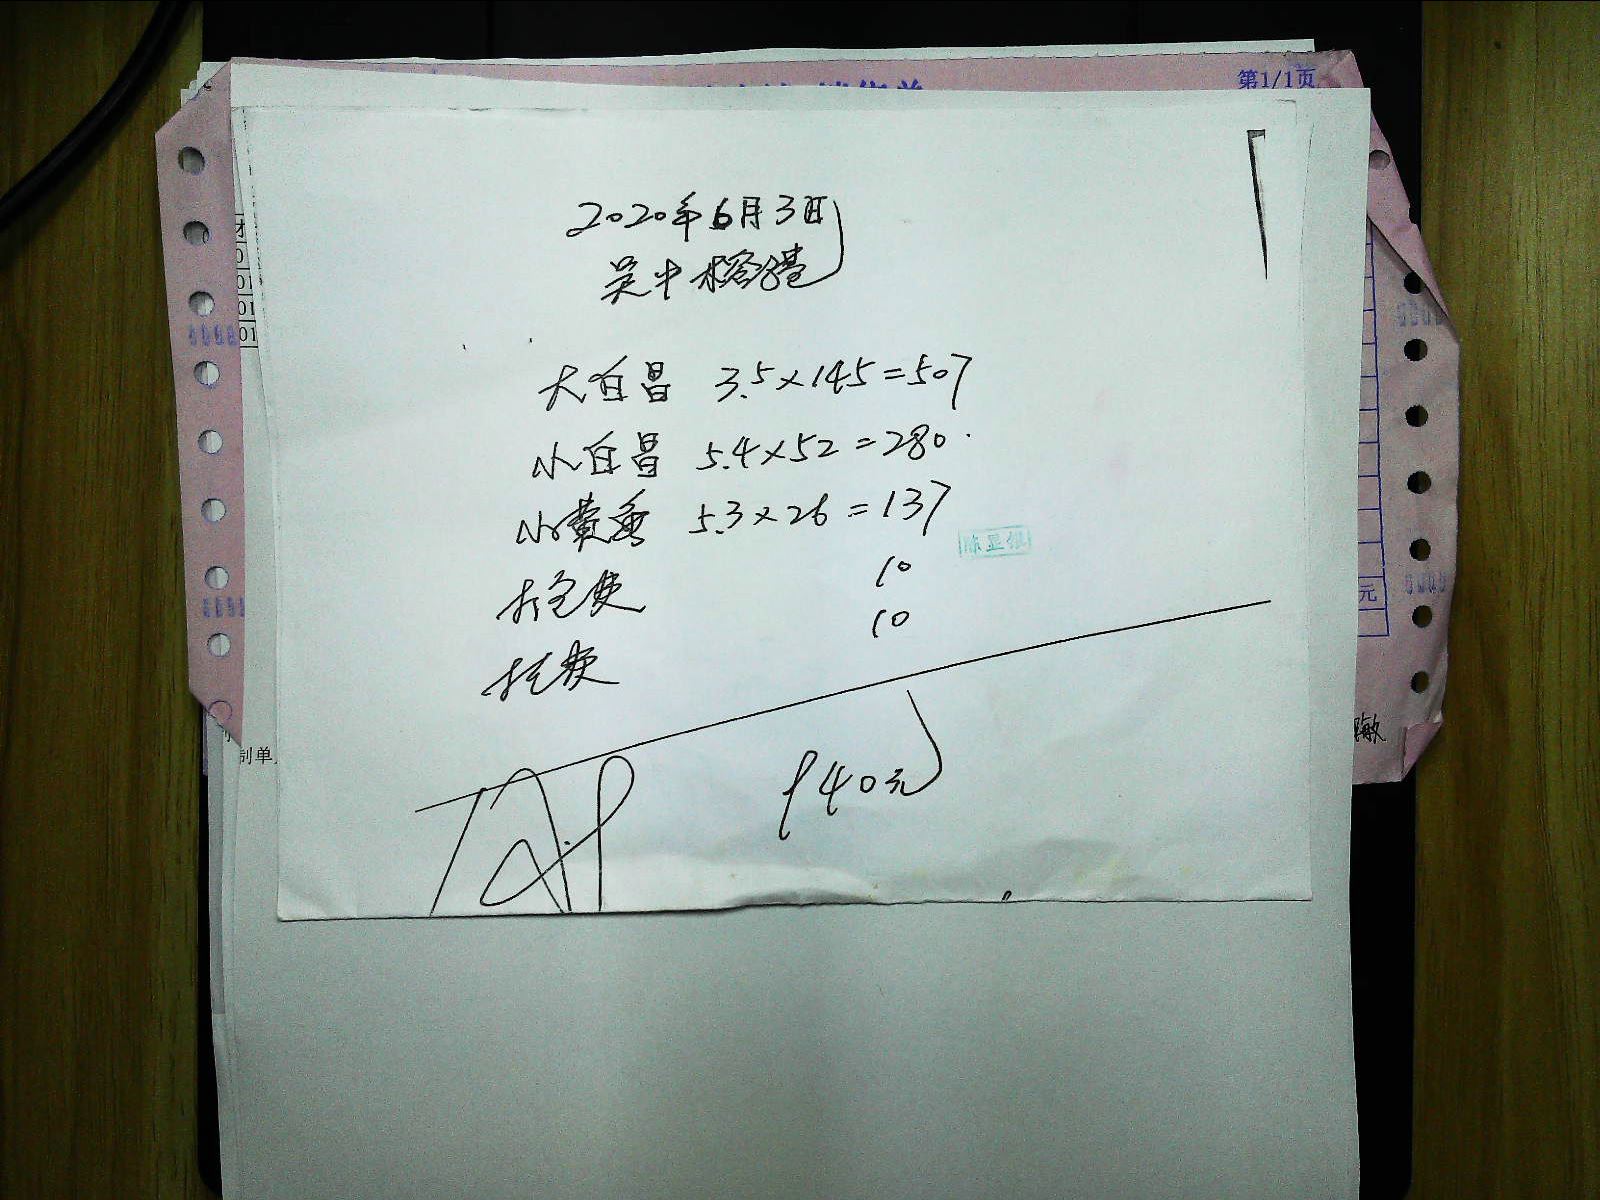 第1/1页
2020年6月3日
吴中榕港
大白昌 3.5×145=507
小白昌 5.4×52=280
小黄鱼 5.3×26=137
打包费 10
托费 10
940元
元
制单
敏